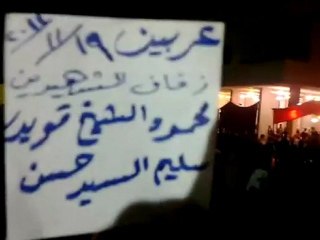 عربين ١٩/١١/٢٠١٢
زفاف الشهيدين
محمود الشيخ قويدر
سليم السيد حسن